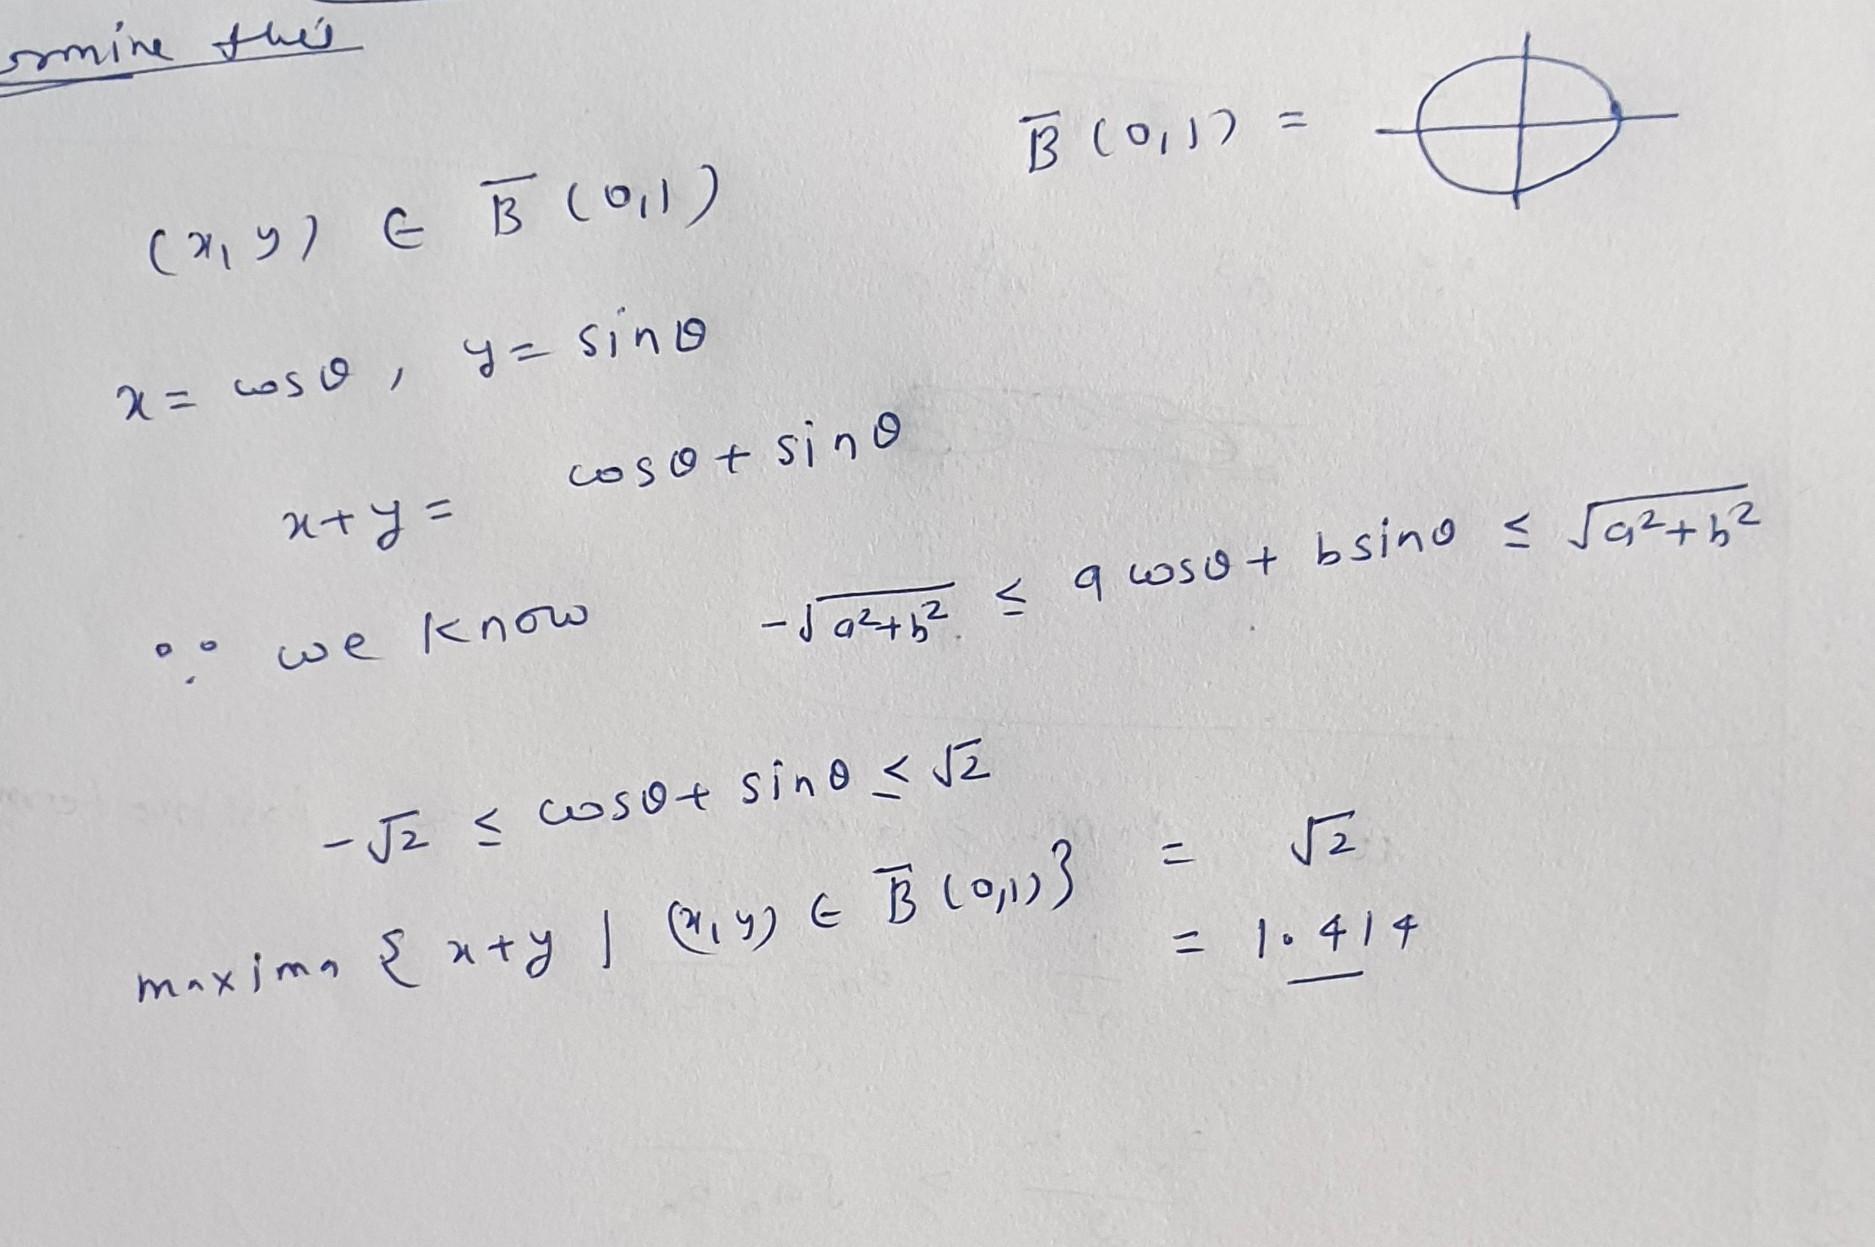 this
B̅ (0,1) =
(x, y) ∈ B̅ (0,1)
x = cosθ, y = sinθ
x+y = cosθ + sinθ
∵ we know -√a²+b² ≤ a cosθ + b sinθ ≤ √a²+b²
-√2 ≤ cosθ + sinθ ≤ √2
maxima { x+y | (x, y) ∈ B̅ (0,1)} = √2
= 1.414